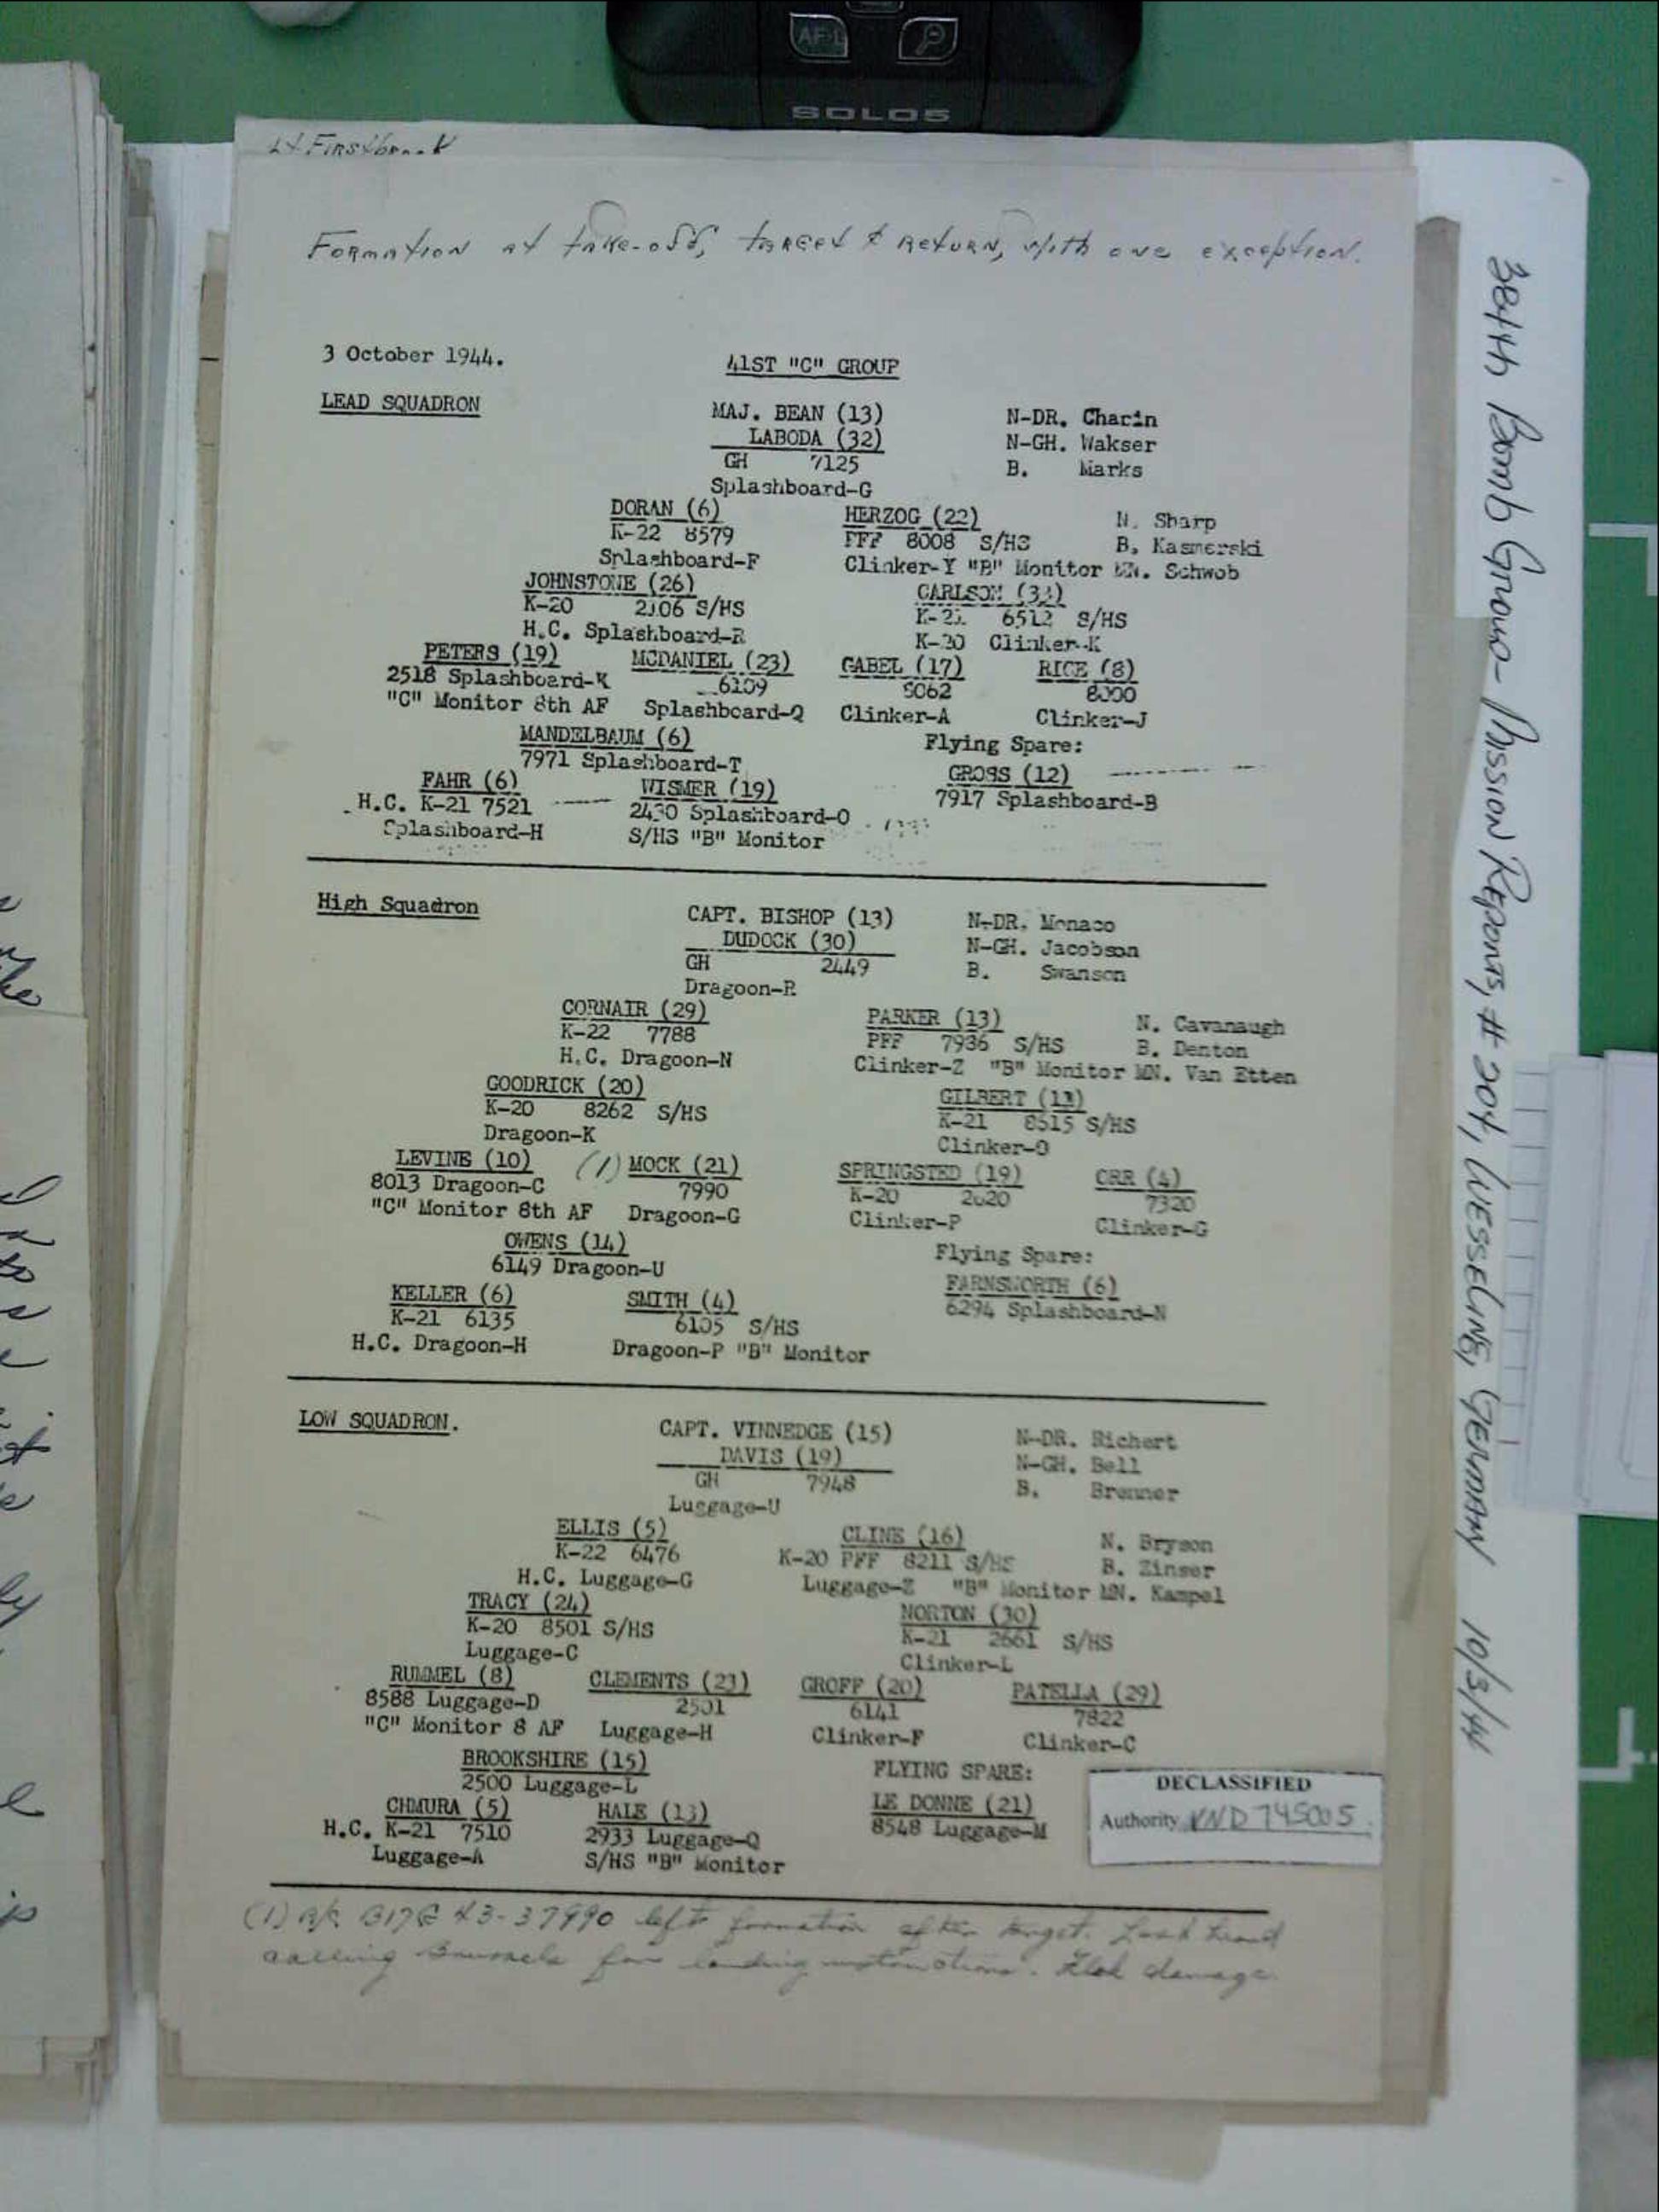 AF-L
SOLO5
Lt Firstbrook
Formation at take-off, target & return, with one exception.
3 October 1944.
41ST "C" GROUP
LEAD SQUADRON
MAJ. BEAN (13) N-DR. Charin
LABODA (32) N-GH. Wakser
GH 7125 B. Marks
Splashboard-G
DORAN (6) HERZOG (22) N. Sharp
K-22 8579 PFF 8008 S/HS B. Kasmerski
Splashboard-F Clinker-Y "B" Monitor MN. Schwob
JOHNSTONE (26) CARLSON (33)
K-20 2106 S/HS K-21 6512 S/HS
H.C. Splashboard-R K-20 Clinker-K
PETERS (19) MCDANIEL (23) GABEL (17) RICE (8)
2518 Splashboard-K 6109 8000
"C" Monitor 8th AF Splashboard-Q Clinker-A Clinker-J
MANDELBAUM (6) Flying Spare:
7971 Splashboard-T
FAHR (6) WISMER (19) GROSS (12)
H.C. K-21 7521 2430 Splashboard-O 7917 Splashboard-B
Splashboard-H S/HS "B" Monitor
High Squadron
CAPT. BISHOP (13) N-DR. Monaco
DUDOCK (30) N-GH. Jacobson
GH 2449 B. Swanson
Dragoon-R
CORNAIR (29) PARKER (13) N. Cavanaugh
K-22 7788 PFF 7936 S/HS B. Denton
H.C. Dragoon-N Clinker-Z "B" Monitor MN. Van Etten
GOODRICK (20) GILBERT (13)
K-20 8262 S/HS K-21 8515 S/HS
Dragoon-K Clinker-O
LEVINE (10) (1) MOCK (21) SPRINGSTED (19) ORR (4)
8013 Dragoon-C 7990 K-20 2620 7320
"C" Monitor 8th AF Dragoon-G Clinker-P Clinker-G
OWENS (14) Flying Spare:
6149 Dragoon-U
KELLER (6) SMITH (4) FARNSWORTH (6)
K-21 6135 6105 S/HS 6294 Splashboard-N
H.C. Dragoon-H Dragoon-P "B" Monitor
LOW SQUADRON.
CAPT. VINNEDGE (15) N-DR. Richert
DAVIS (19) N-GH. Bell
GH 7948 B. Brenner
Luggage-U
ELLIS (5) CLINE (16) N. Bryson
K-22 6476 K-20 PFF 8211 S/HS B. Zinser
H.C. Luggage-G Luggage-Z "B" Monitor MN. Kampel
TRACY (24) NORTON (30)
K-20 8501 S/HS K-21 2661 S/HS
Luggage-C Clinker-L
RUMMEL (8) CLEMENTS (23) GROFF (20) PATELLA (29)
8588 Luggage-D 2501 6141 7822
"C" Monitor 8 AF Luggage-H Clinker-F Clinker-C
BROOKSHIRE (15) FLYING SPARE:
2500 Luggage-L
CHMURA (5) HALE (13) LE DONNE (21)
H.C. K-21 7510 2933 Luggage-Q 8548 Luggage-M
Luggage-A S/HS "B" Monitor
DECLASSIFIED
Authority NND 745005
(1) A/C B17G 43-37990 left formation after target. Last heard
calling Brussels for landing instructions. Flak damage.
384th Bomb Group- Mission Reports, # 204, WESSELING, GERMANY 10/3/44